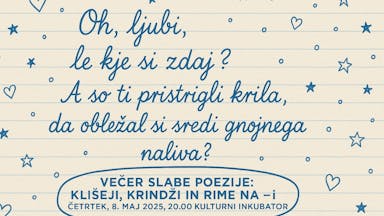 Oh, ljubi,
le kje si zdaj?
A so ti pristrigli krila,
da obležal si sredi gnojnega
naliva?
VEČER SLABE POEZIJE:
KLIŠEJI, KRINDŽI IN RIME NA –i
ČETRTEK, 8. MAJ 2025, 20.00 KULTURNI INKUBATOR